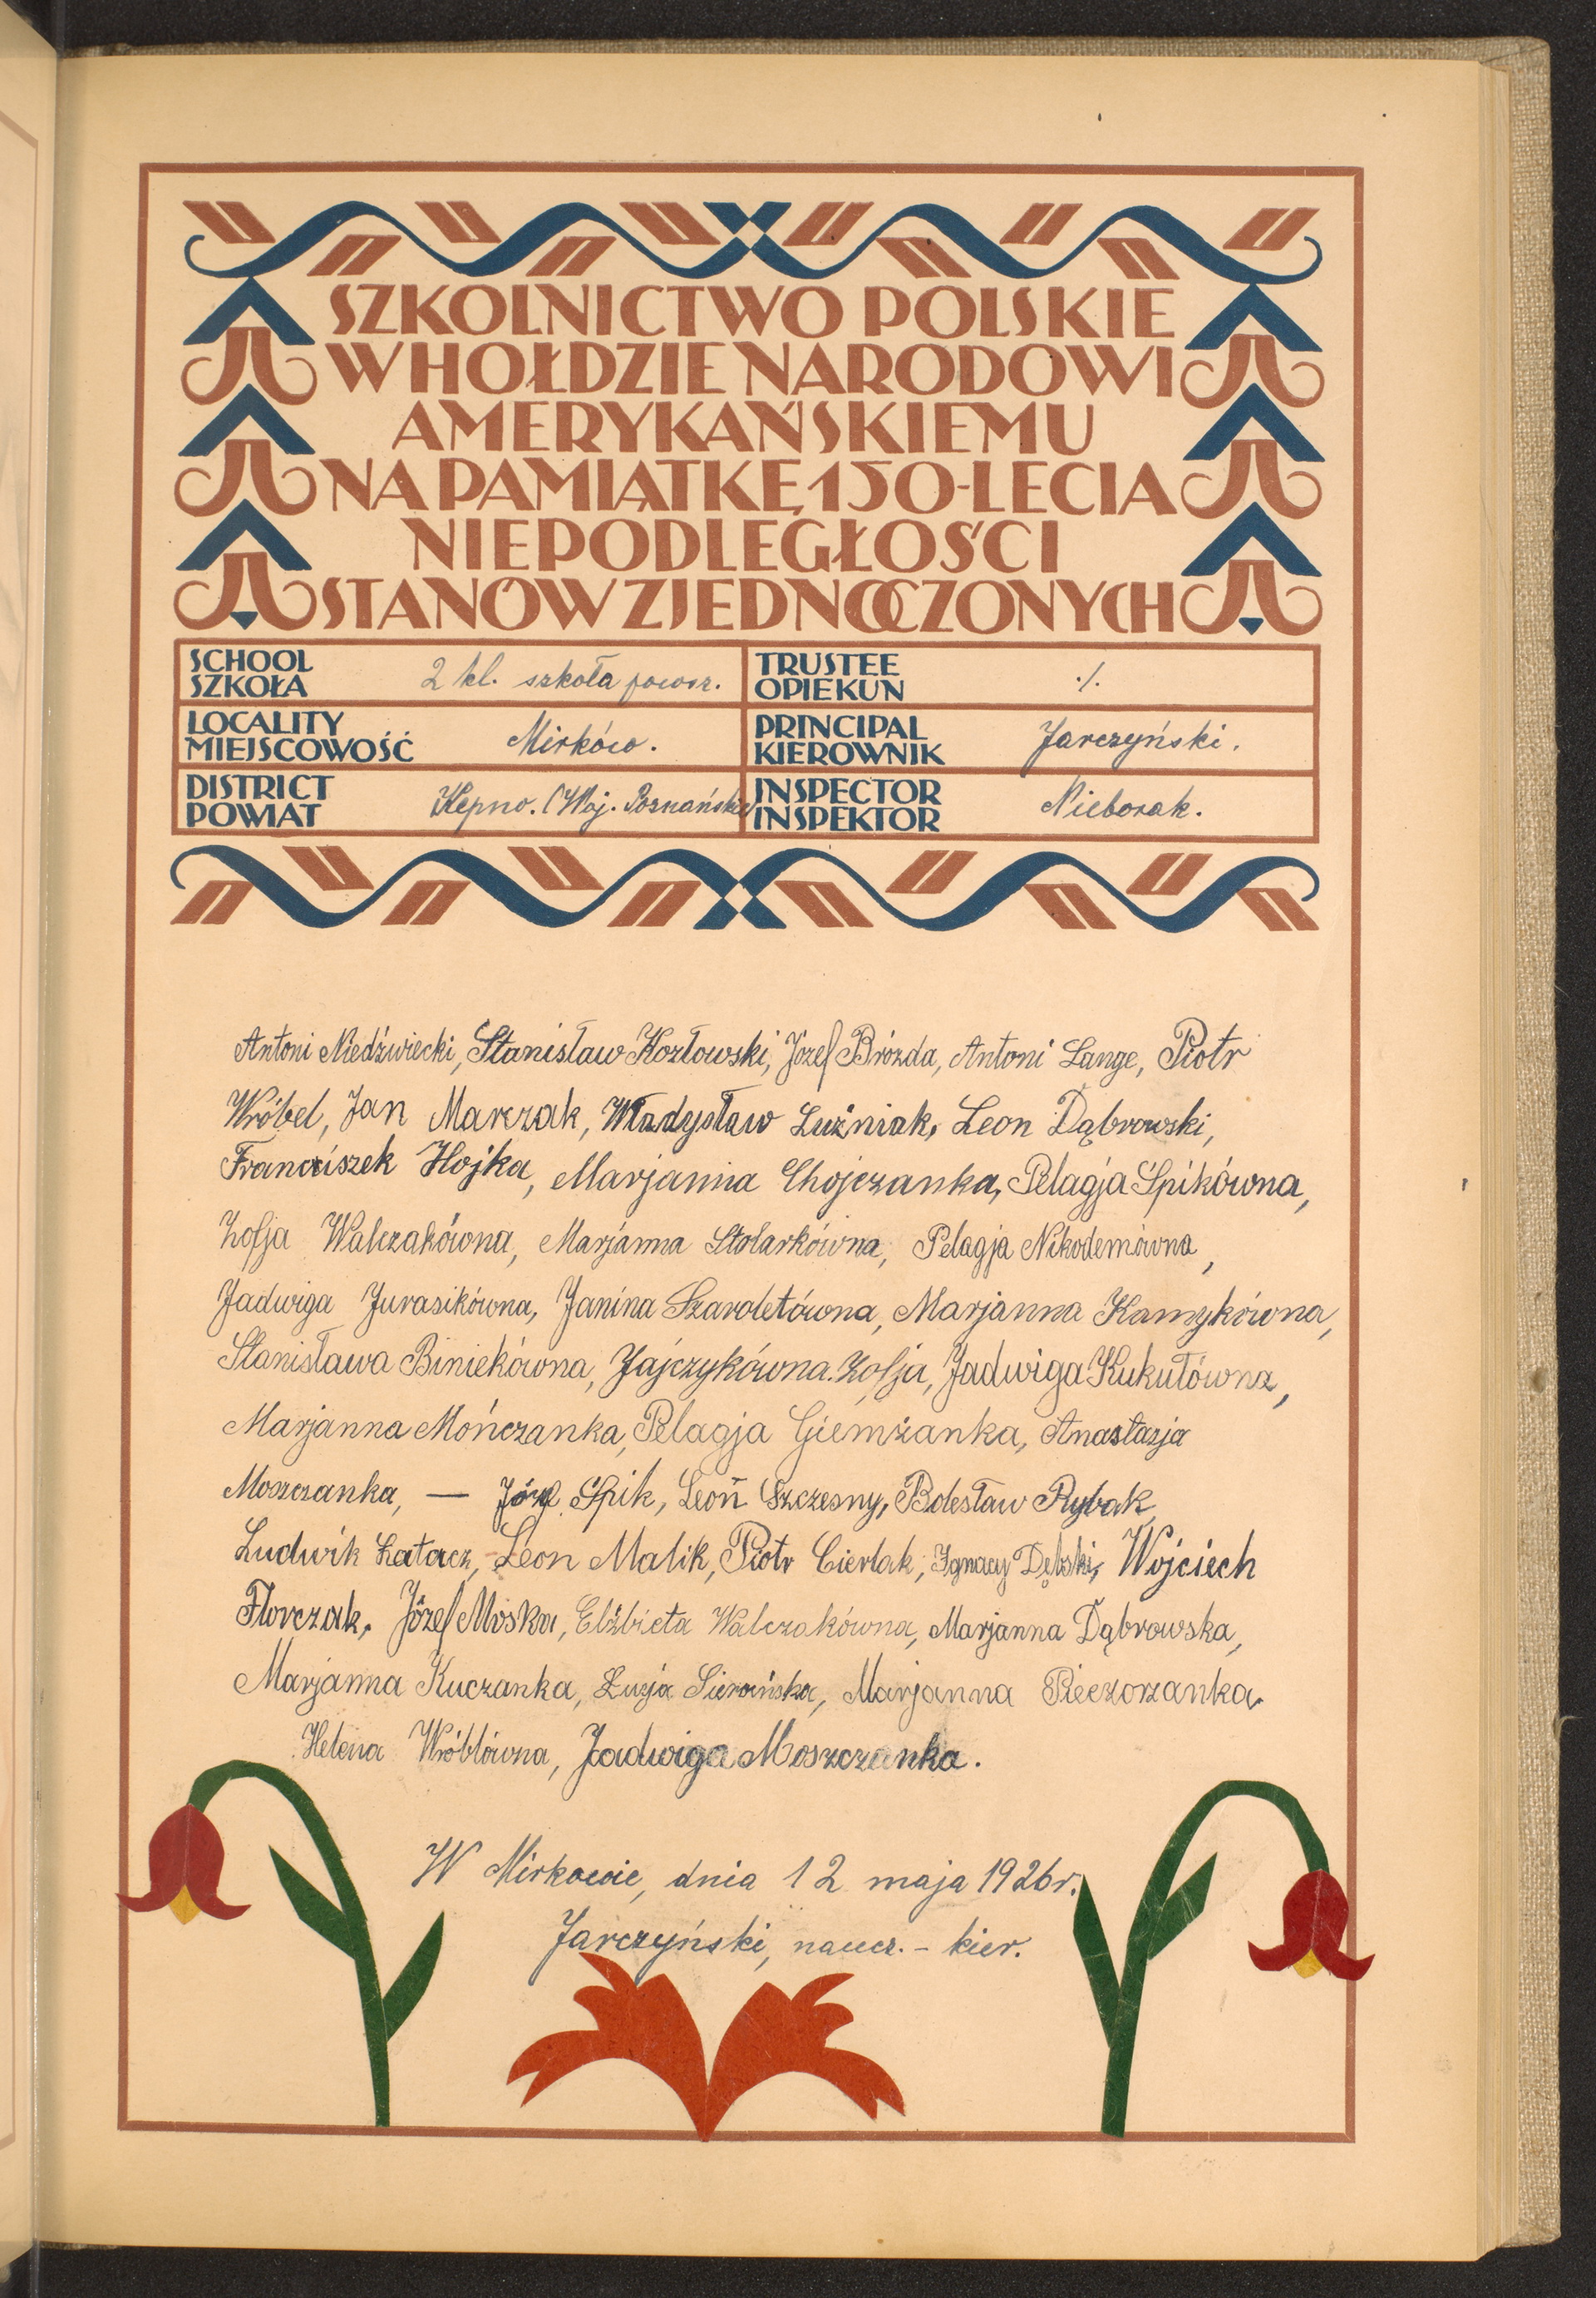 SZKOLNICTWO POLSKIE
W HOŁDZIE NARODOWI
AMERYKAŃSKIEMU
NA PAMIĄTKĘ 150-LECIA
NIEPODLEGŁOŚCI
STANÓW ZJEDNOCZONYCH
SCHOOL
SZKOŁA
2 kl. szkoła powsz.
TRUSTEE
OPIEKUN
./.
LOCALITY
MIEJSCOWOŚĆ
Mirków.
PRINCIPAL
KIEROWNIK
Jarczyński.
DISTRICT
POWIAT
Kępno. (Woj. Poznańskie
INSPECTOR
INSPEKTOR
Nieborak.
Antoni Niedźwiecki, Stanisław Kozłowski, Józef Brózda, Antoni Lange, Piotr
Wróbel, Jan Marczak, Władysław Luźniak, Leon Dąbrowski,
Franciszek Hojka, Marjanna Chojczanka, Pelagja Śpikówna,
Zofja Walczakówna, Marjanna Stolarkówna, Pelagja Nikodemówna,
Jadwiga Jurasikówna, Janina Szaroletówna, Marjanna Kamykówna,
Stanisława Biniekówna, Jajczykówna Zofja, Jadwiga Kukułówna,
Marjanna Mończanka, Pelagja Giemżanka, Anastazja
Moszczanka, — Józef Śpik, Leon Szczesny, Bolesław Rybak
Ludwik Łatacz, Leon Malik, Piotr Cierlak, Ignacy Dębski, Wojciech
Florczak, Józef Moska, Elżbieta Walczakówna, Marjanna Dąbrowska,
Marjanna Kuczanka, Łucja Sierańska, Marjanna Pieczorzanka,
Helena Wróblówna, Jadwiga Moszczanka.
W Mirkowie, dnia 12 maja 1926r.
Jarczyński, naucz. - kier.